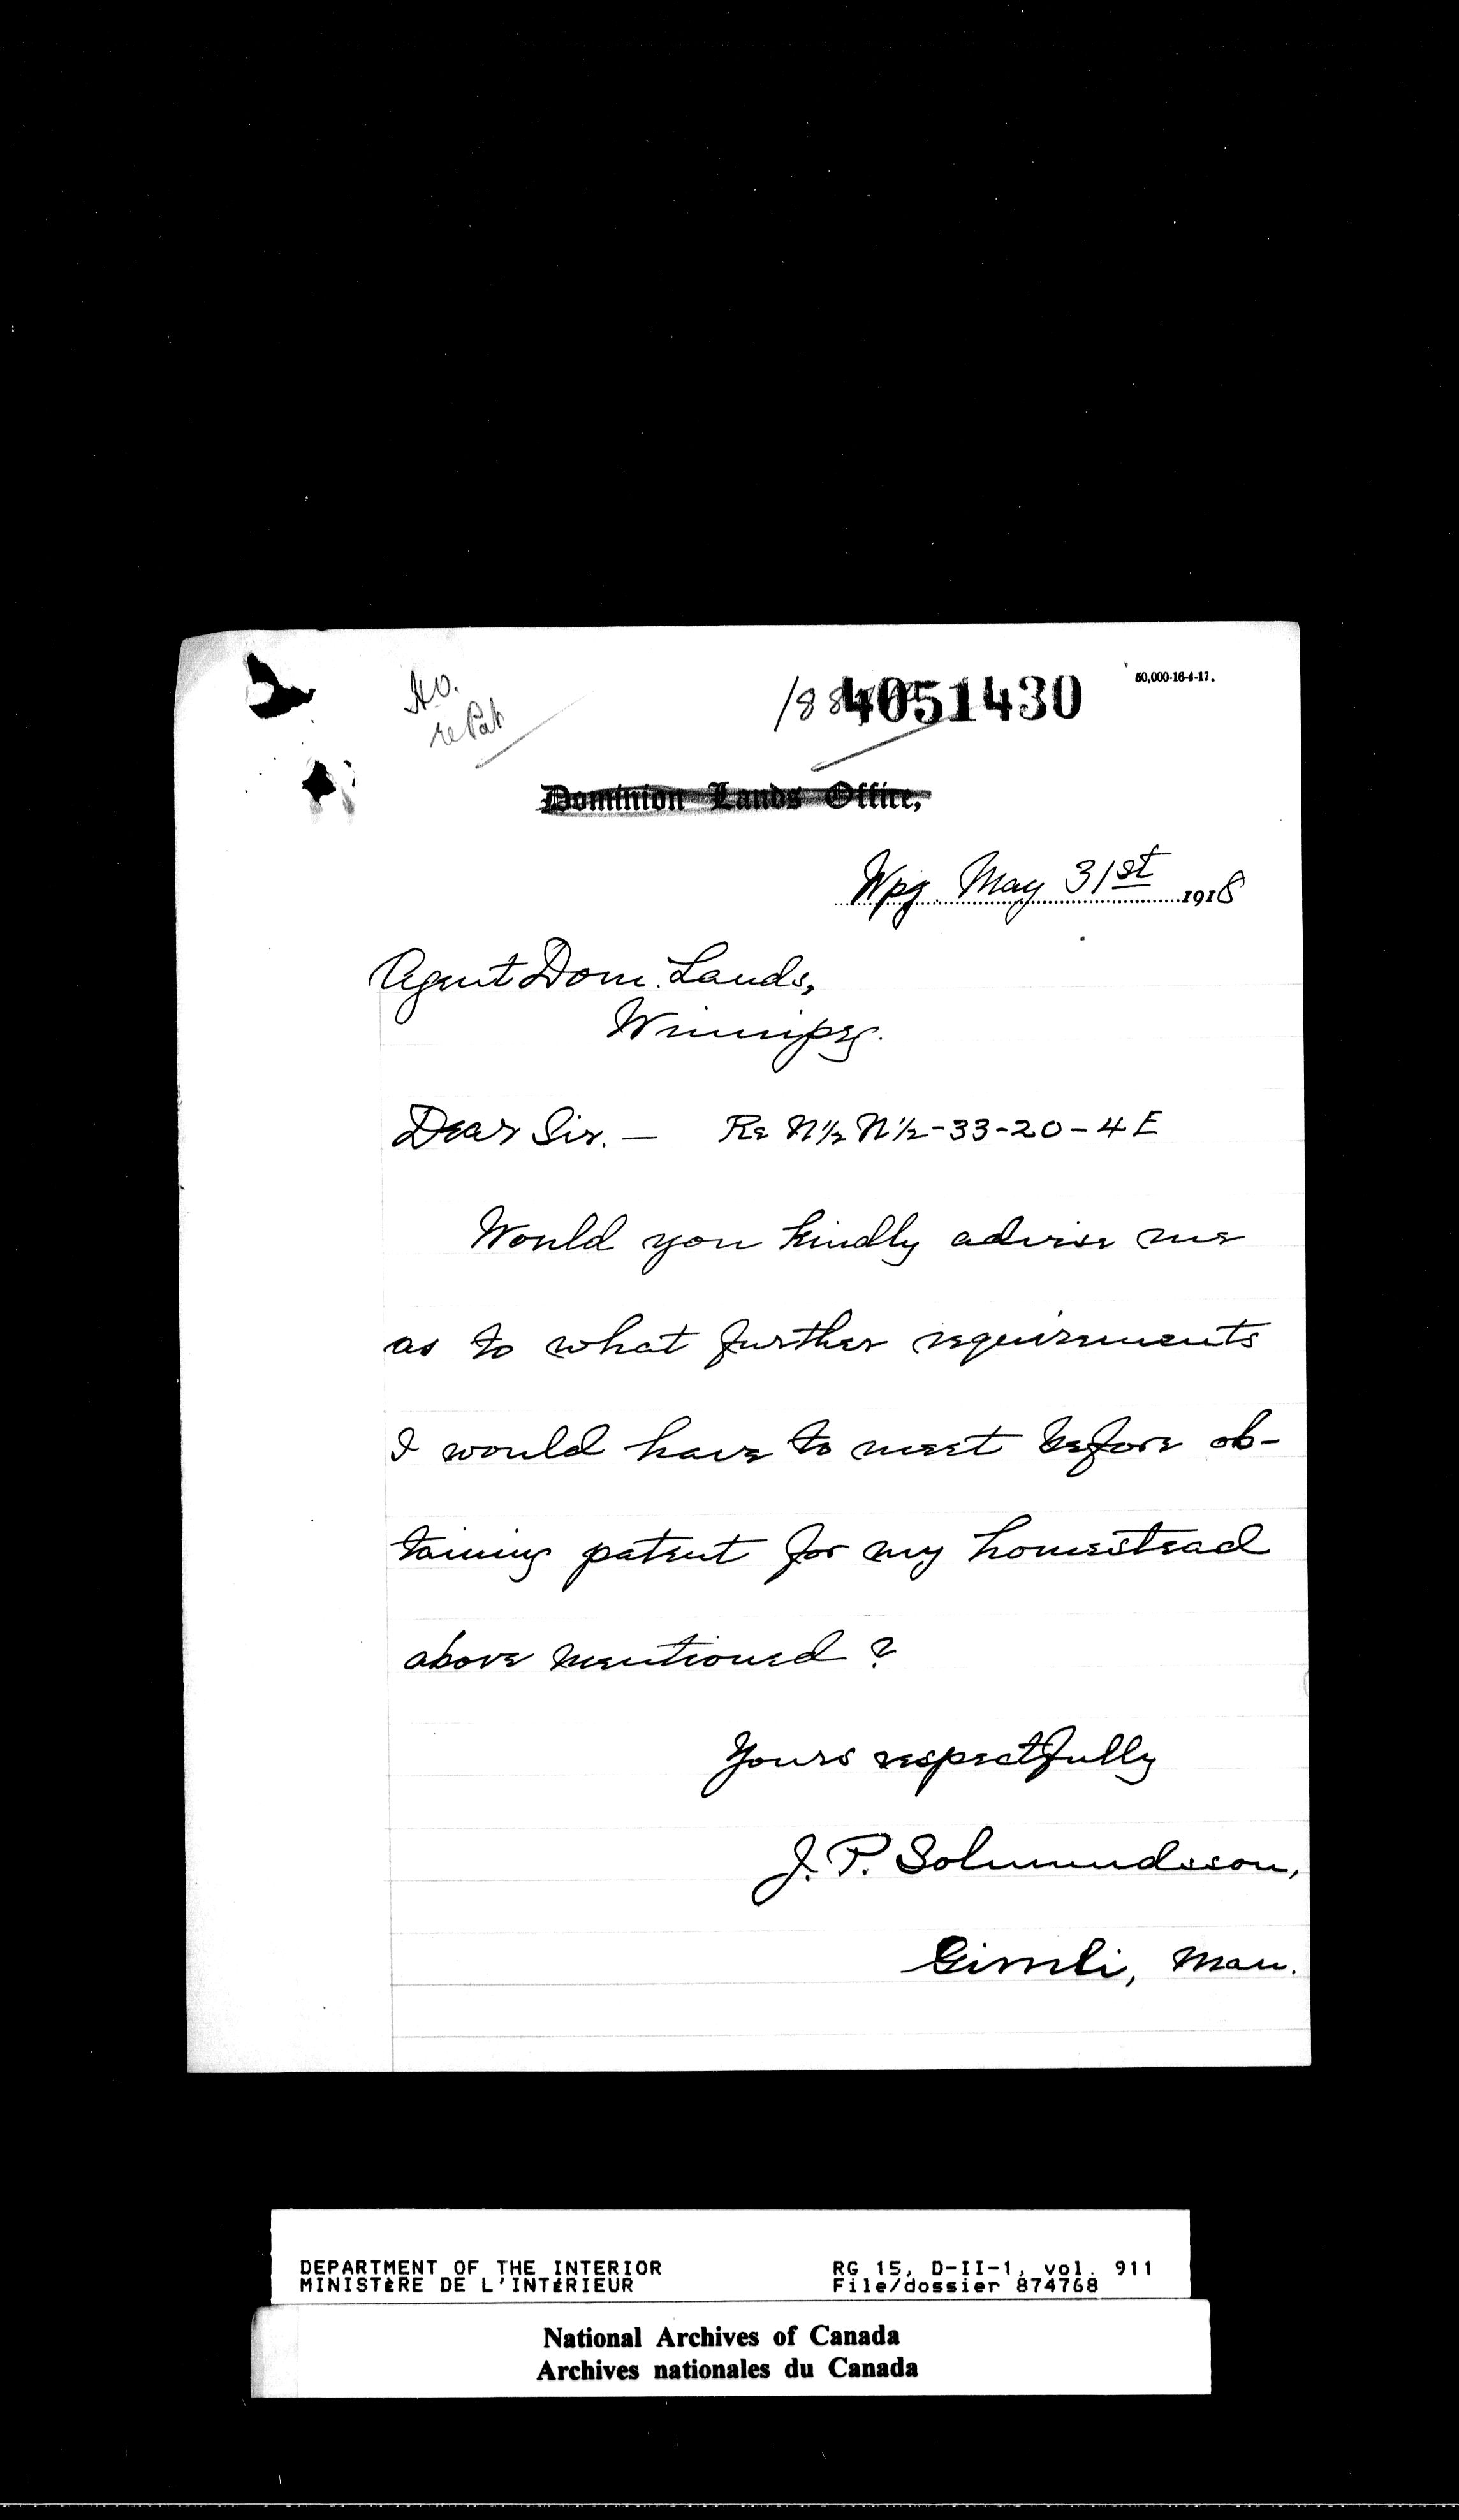 No.
re Pat
4051430
50,000-16-4-17.
Dominion Lands Office,
Wpg. May 31st 1918
Agent Dom. Lands,
Winnipeg.
Dear Sir. — Re N½ N½-33-20-4E
Would you kindly advise me
as to what further requirements
I would have to meet before ob-
taining patent for my homestead
above mentioned?
Yours respectfully
J. P. Solmundsson,
Gimli, Man.
DEPARTMENT OF THE INTERIOR
MINISTÈRE DE L'INTÉRIEUR
RG 15, D-II-1, vol. 911
File/dossier 874768
National Archives of Canada
Archives nationales du Canada